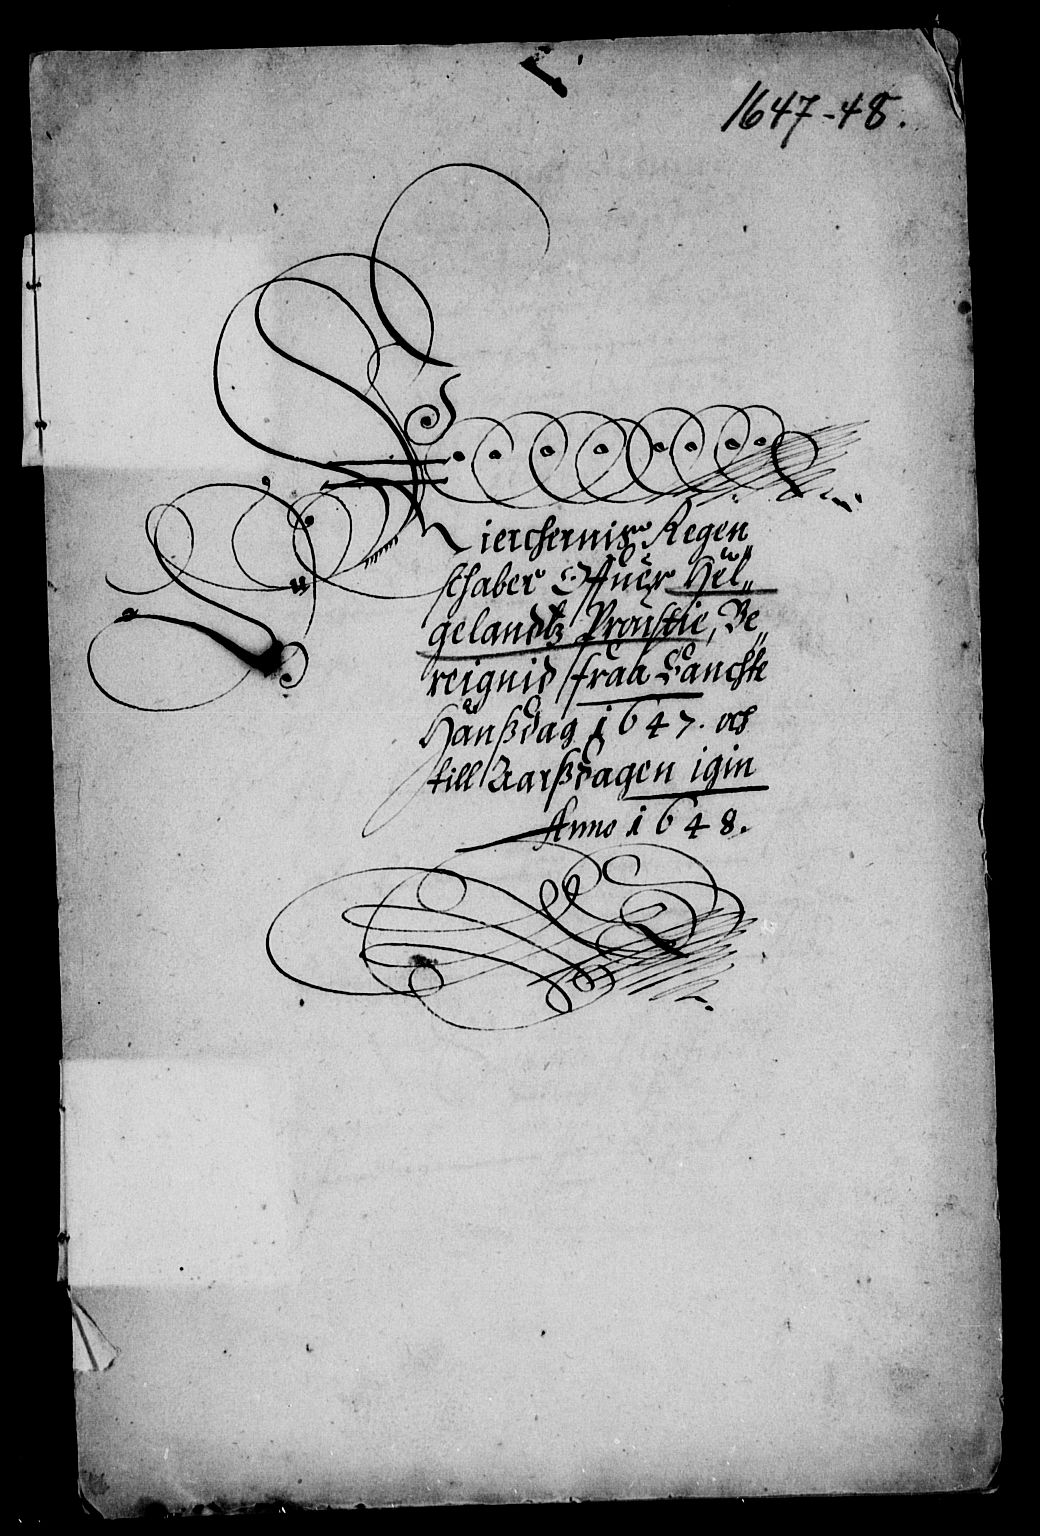 1647-48.
Kierchernis Regen
schaber Offuer Hel„
gelandtz Proustie, Be„
reignid fraa Sanchte
Hanßdag 1647. och
till Aarßdagen igin
Anno 1648.